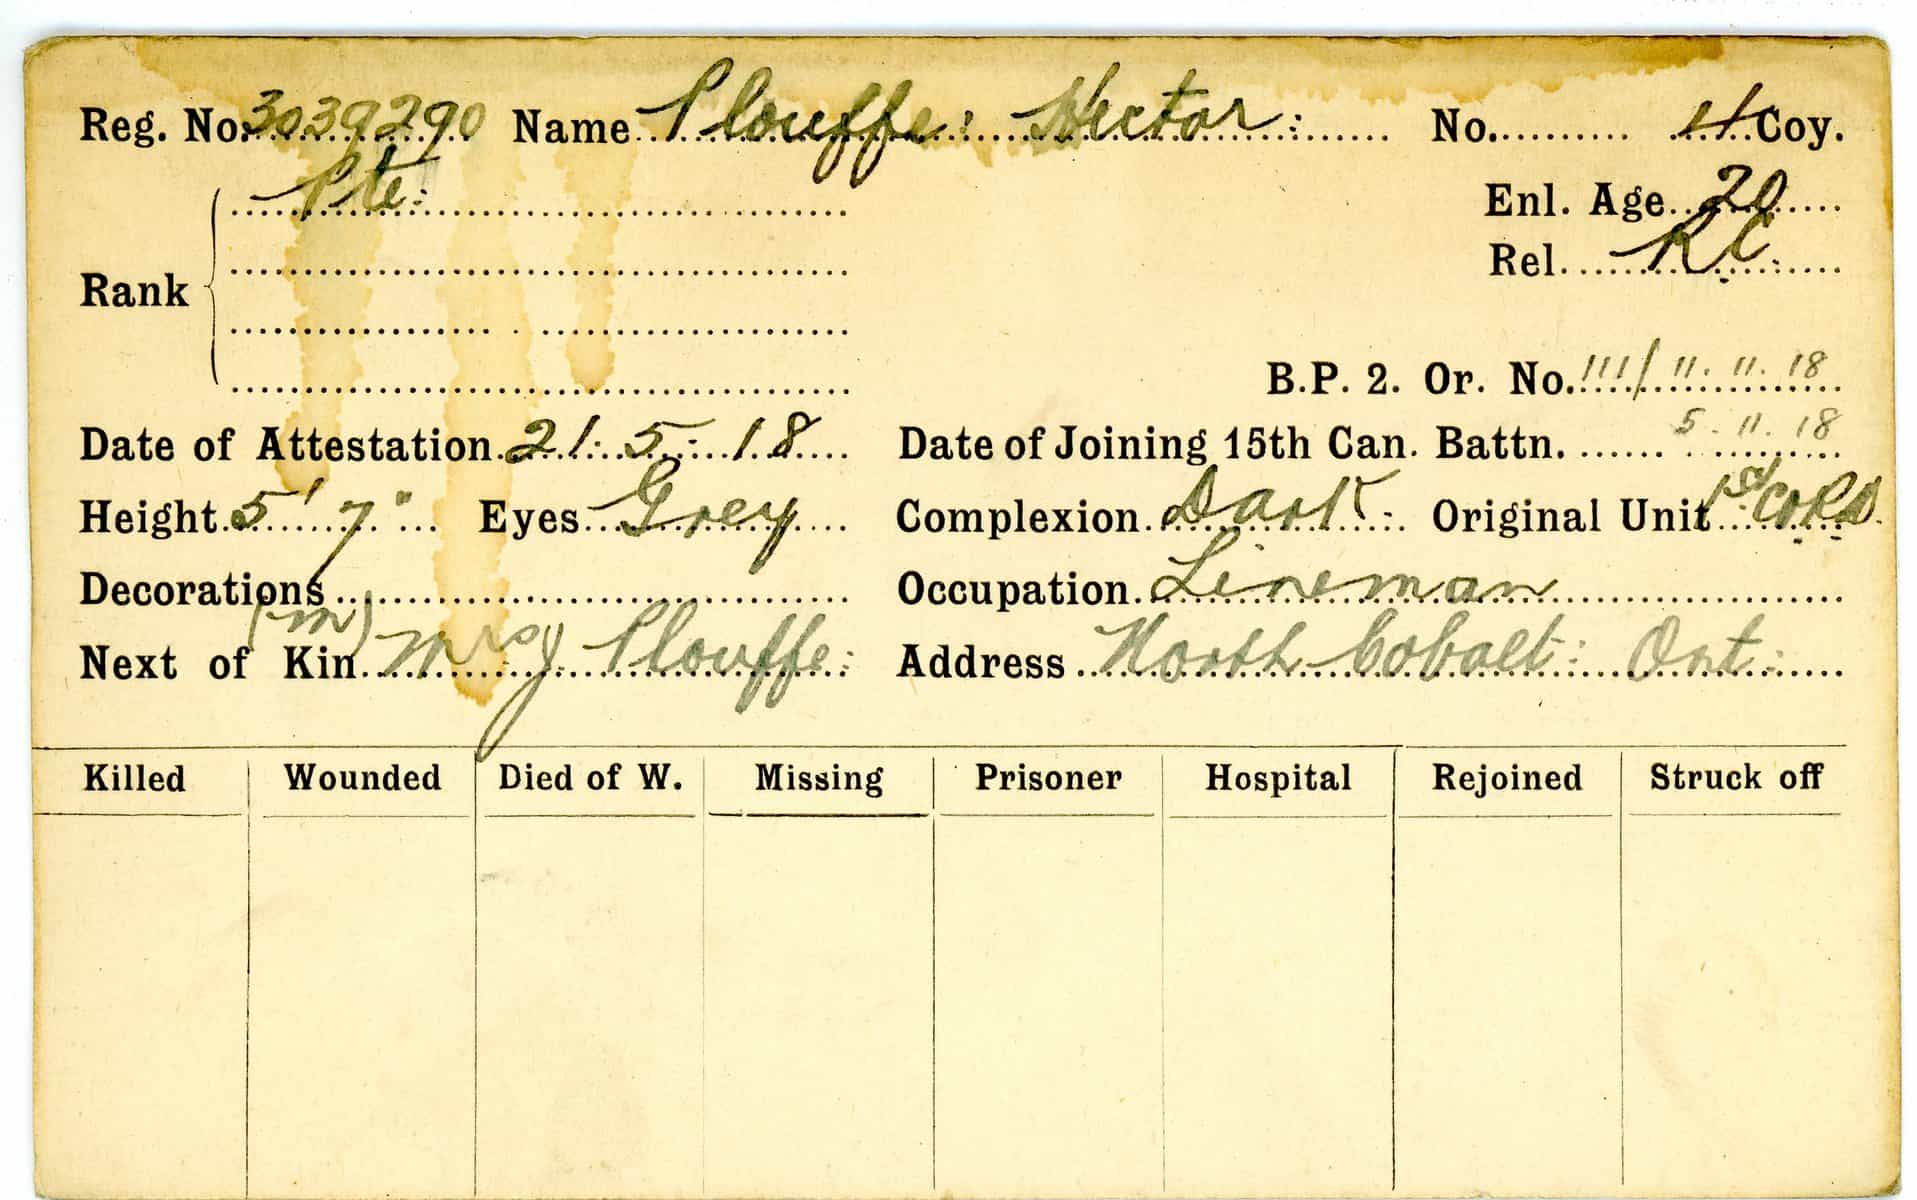 Reg. No. 3039290 Name Plouffe: Hector: No. 4 Coy.
Pte:
Enl. Age 20
Rel. R.C.
Rank
B.P. 2. Or. No. 111/ 11. 11. 18
Date of Attestation 21. 5. 18 Date of Joining 15th Can. Battn. 5. 11. 18
Height 5' 7" Eyes Grey Complexion Dark Original Unit 1st CORD.
Decorations Occupation Lineman
(m)
Next of Kin Mrs J. Plouffe: Address North Cobalt: Ont:
Killed Wounded Died of W. Missing Prisoner Hospital Rejoined Struck off